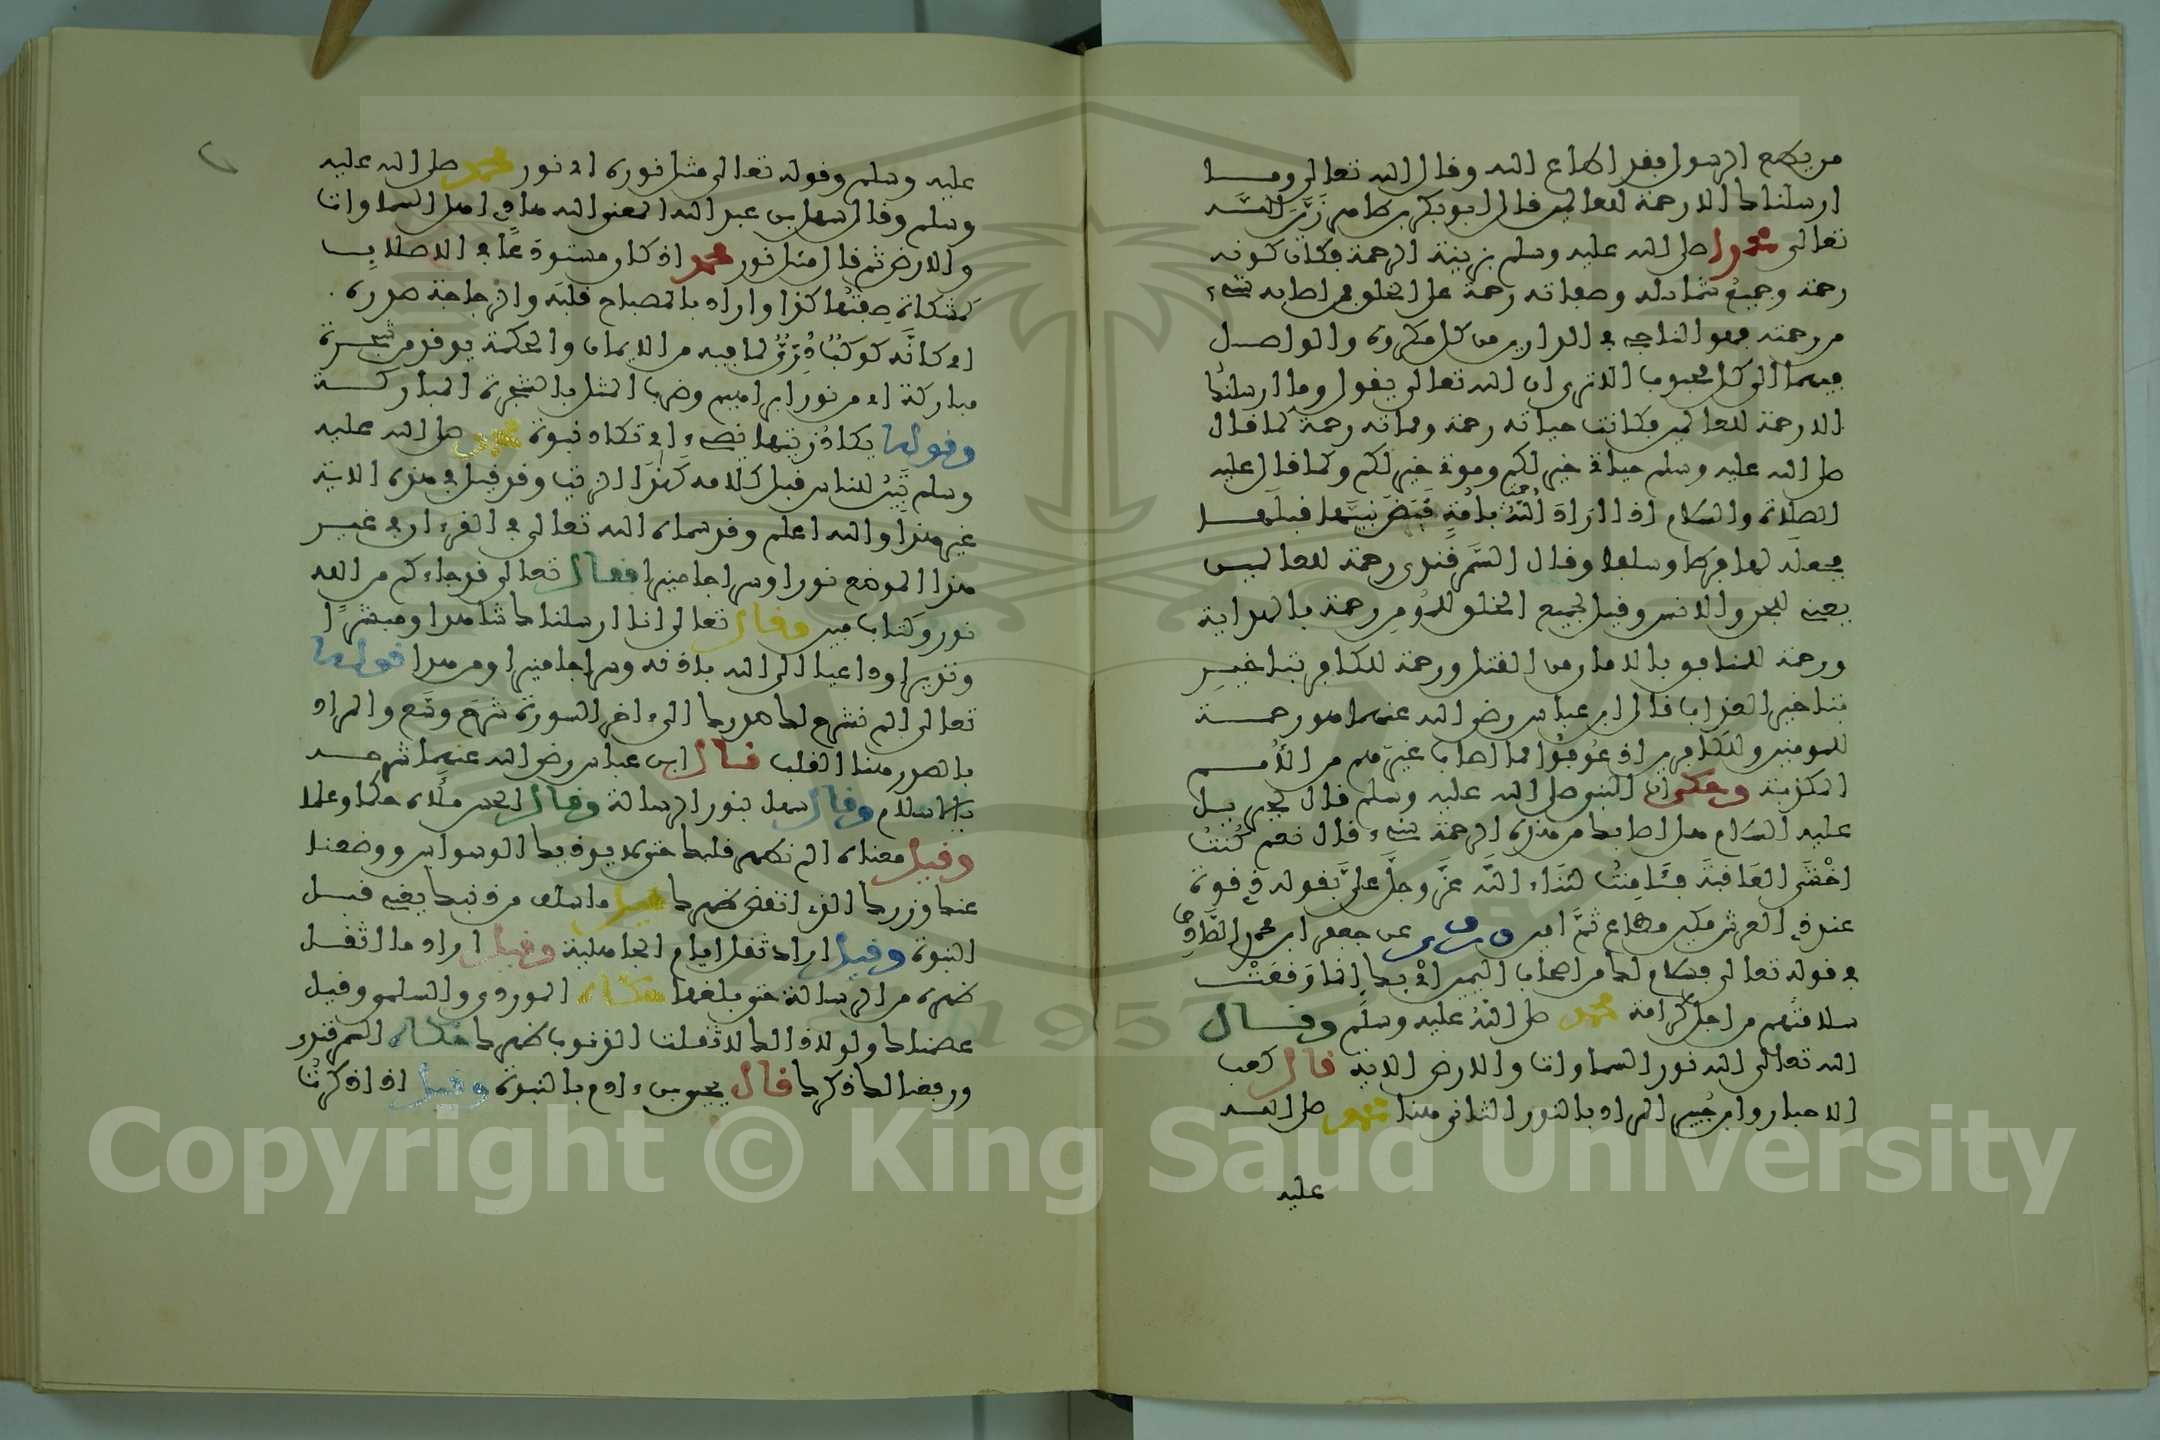 من يطع الرسول فقد اطاع الله وقال الله تعالى وما
ارسلناك الا رحمة للعالمين قال ابو بكر بن طاهر زَيَّنَ اللَّه
تعالى محمدا صلى الله عليه وسلم بزينة الرحمة فكان كونه
رحمة وجميع شمائله وصفاته رحمة على الخلق فمن اصابه شىء
من رحمته فهو الناجى فى الدارين من كل مكروه والواصل
فيهما الى كل محبوب الا ترى ان الله تعالى يقول وما ارسلناك
الا رحمة للعالمين فكانت حياته رحمة ومماته رحمة كما قال
صلى الله عليه وسلم حياتى خير لكم وموتى خير لكم وكما قال عليه
الصلاة والسلام اذا اراد اللهُ رحمة بامَّةٍ قَبَضَ نَبِيَّها قبلَها
فجعله لها فرطا وسلفا وقال السَّمرقندى رحمة للعالمين
يعنى للجن والانس وقيل لجميع الخلق للمُومن رحمة بالهداية
ورحمة للمنافق بالامان من القتل ورحمة للكافر بتاخير
بتاخير العذاب قال ابن عباس رضى الله عنهما هو رحمة
للمومنين وللكافرين اذ عُوفُوا مما اصاب غيرهم من الاُمم
المكذبة وحكى ان النبى صلى الله عليه وسلم قال لجبريل
عليه السلام هل اصابك من هذه الرحمة شىء قال نعم كُنتُ
اخْشَى العَاقبَةَ فَأمِنتُ لثَنَاء اللَّه عزَّ وجلَّ علىَّ بقوله ذى قوة
عند ذى العرش مكين مطاع ثمَّ امين وروى عن جعفر ابن محمد الصَّادق
فى قوله تعالى فسلام لك من اصحاب اليمين اىْ بك انما وَقعَتْ
سلامتُهم من اجل كرامة محمد صلى اللهُ عليه وسلَّم وقال
الله تعالى الله نور السماوات والارض الاية قال كعب
الاحبار وابن جُبير المراد بالنور الثانى هنا محمد صلى الله
عليه
عليه وسلم وقوله تعالى مثل نوره اى نور محمد صلى الله عليه
وسلم وقال سهل بن عبد الله المعنى الله هادى اهل السماوات
والارض ثم قال مثل نور محمد اذ كان مستودعًا فى الاصلاب
كمشكاة صِفتُها كذا واراد بالمصباح قلبَه والزجاجة صدره
اى كانَّه كوكبٌ دُرِّىٌّ لما فيه من الايمان والحكمة يوقد من شجرة
مباركة اى من نور ابراهيم وضرب المثل بالشجرة المباركة
وقوله يكادُ زيتها يضىء اى تكاد نبوة محمد صلى الله عليه
وسلم تَبِينُ للناس قبل كلامه كَهَذَا الزيت وقد قيل فى هذه الاية
غير هذا والله اعلم وقد سماه الله تعالى فى القرءان فى غير
هذا الموضع نورا وسراجا منيرا فقال تعالى قد جاءكم من الله
نور وكتاب مبين وقال تعالى انا ارسلناك شاهدا ومبشرًا
ونذيرا وداعيا الى الله باذنه وسراجا منيرا ومن هذا قوله
تعالى الم نشرح لك صدرك الى ءاخر السورة شرح وسَّع والمراد
بالصدر هنا القلب قال ابن عباس رضى الله عنهما شرحه
بالاسلام وقال سهل بنور الرسالة وقال الحسن مَلَأه حكما وعلما
وقيل معناه الم نطهر قلبك حتى لا يوذيك الوسواس ووضعنا
عنك وزرك الذى انقض ظهرك قيل ما سلف من ذنبك يعنى قبل
النبوة وقيل اراد ثقل ايام الجاهلية وقيل اراد ما اثقل
ظهره من الرسالة حتى بلغها حكاه الموردى والسلمى وقيل
عصمناك ولولا ذالك لاثقلت الذنوب ظهرك حكاه السمرقندى
ورفعنا لك ذكرك قال يحيى بن ءادم بالنبوة وقيل اذا ذكرتُ